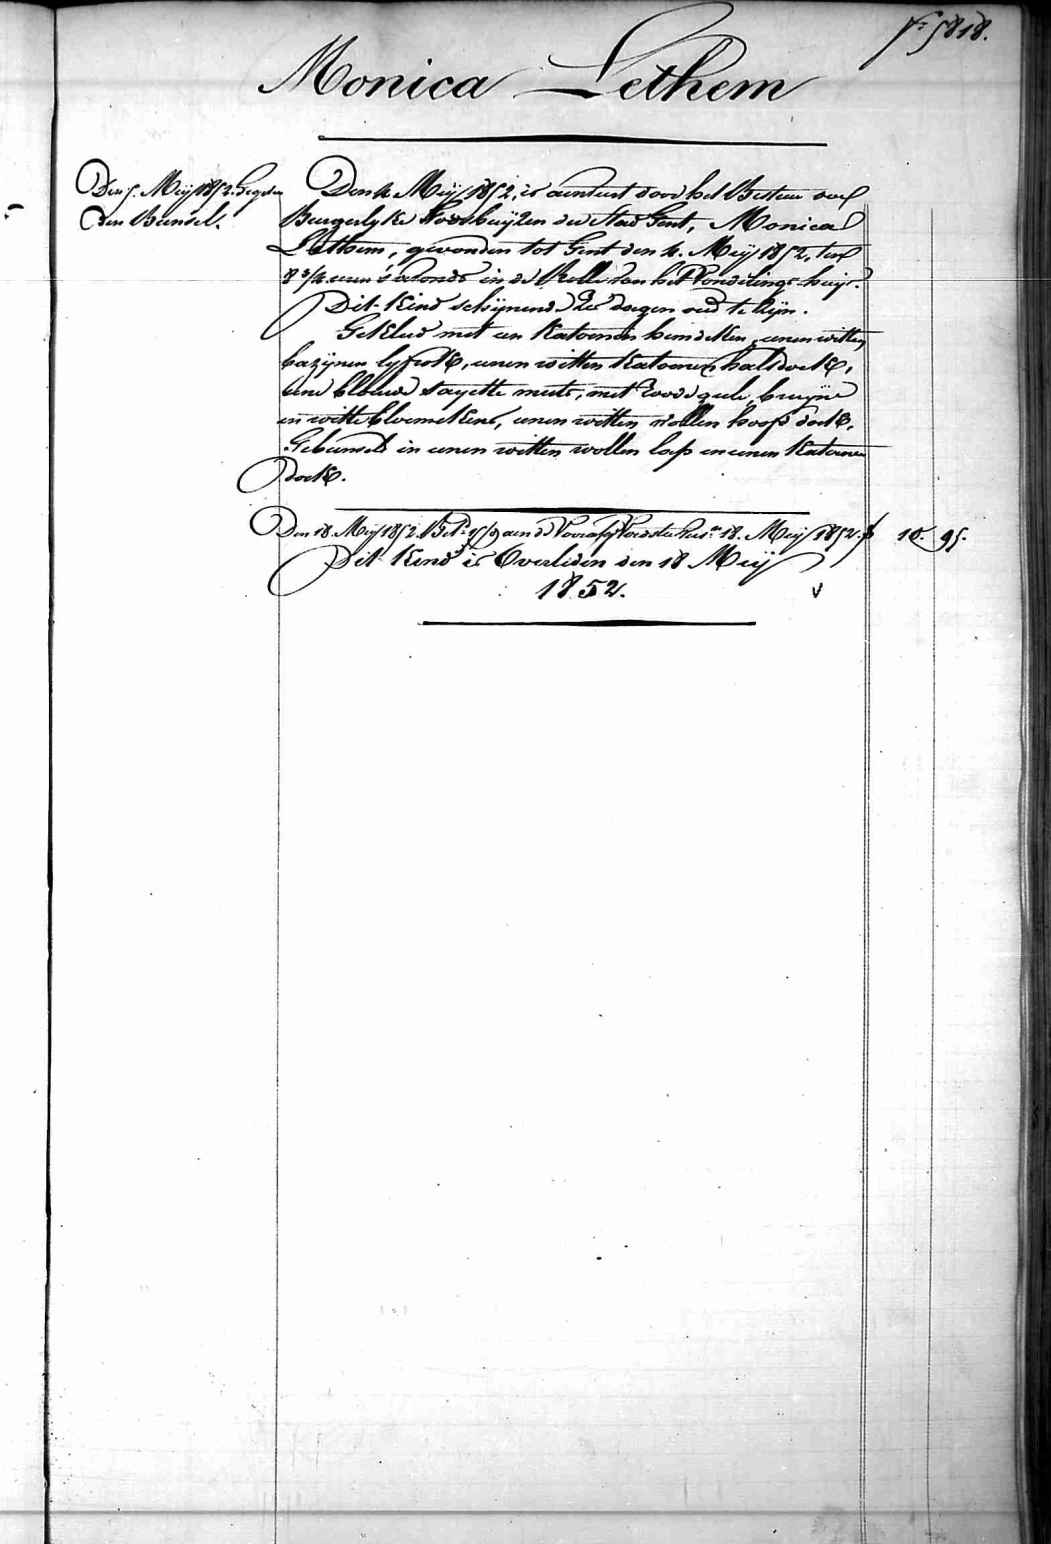 5818.
Monica Lethem
Den 5. Meij 1852.
den Bundel.
Den 4 Meij 1852, is aenveert door het Bestuer der
Burgerlyke Godshuijzen der Stad Gent, Monica
Lethem, gevonden tot Gent den 4. Meij 1852, ten
8 3/4 uren 's avonds in de Rolle van het Vondelings-huijs.
Dit Kind schijnende 2 dagen oud te zijn.
Gekleed met een Katoenen hemdeken, eenen witten
bazijnen lyfrok, eenen witten Katoenen halsdoek,
eene blauwe sayette muts, met roode, geele, bruijne
en witte bloemekens, eenen witten wollen hoofd doek.
Gebunseld in eenen witten wollen lap en eenen Katoenen
doek.
Den 18. Meij 1852. Bet. aen de 18. Meij 1852. f 10. 95.
Dit Kind is Overleden den 18 Meij
1852.